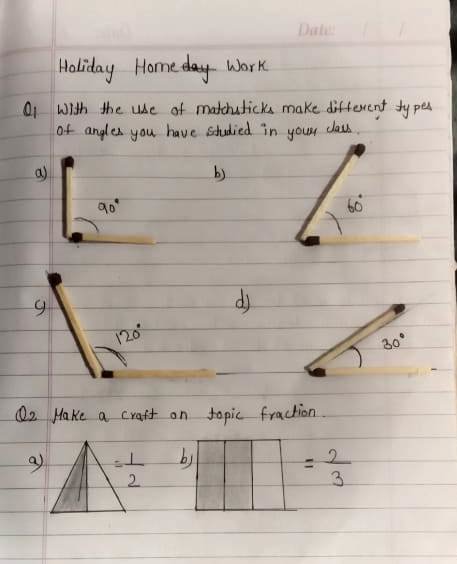 Date: / /
Holiday Home day Work
Q1 With the use of matchsticks make different types
of angles you have studied in your class.
a) b)
90° 60°
c) d)
120° 30°
Q2 Make a craft on topic fraction.
a) = 1/2 b) = 2/3